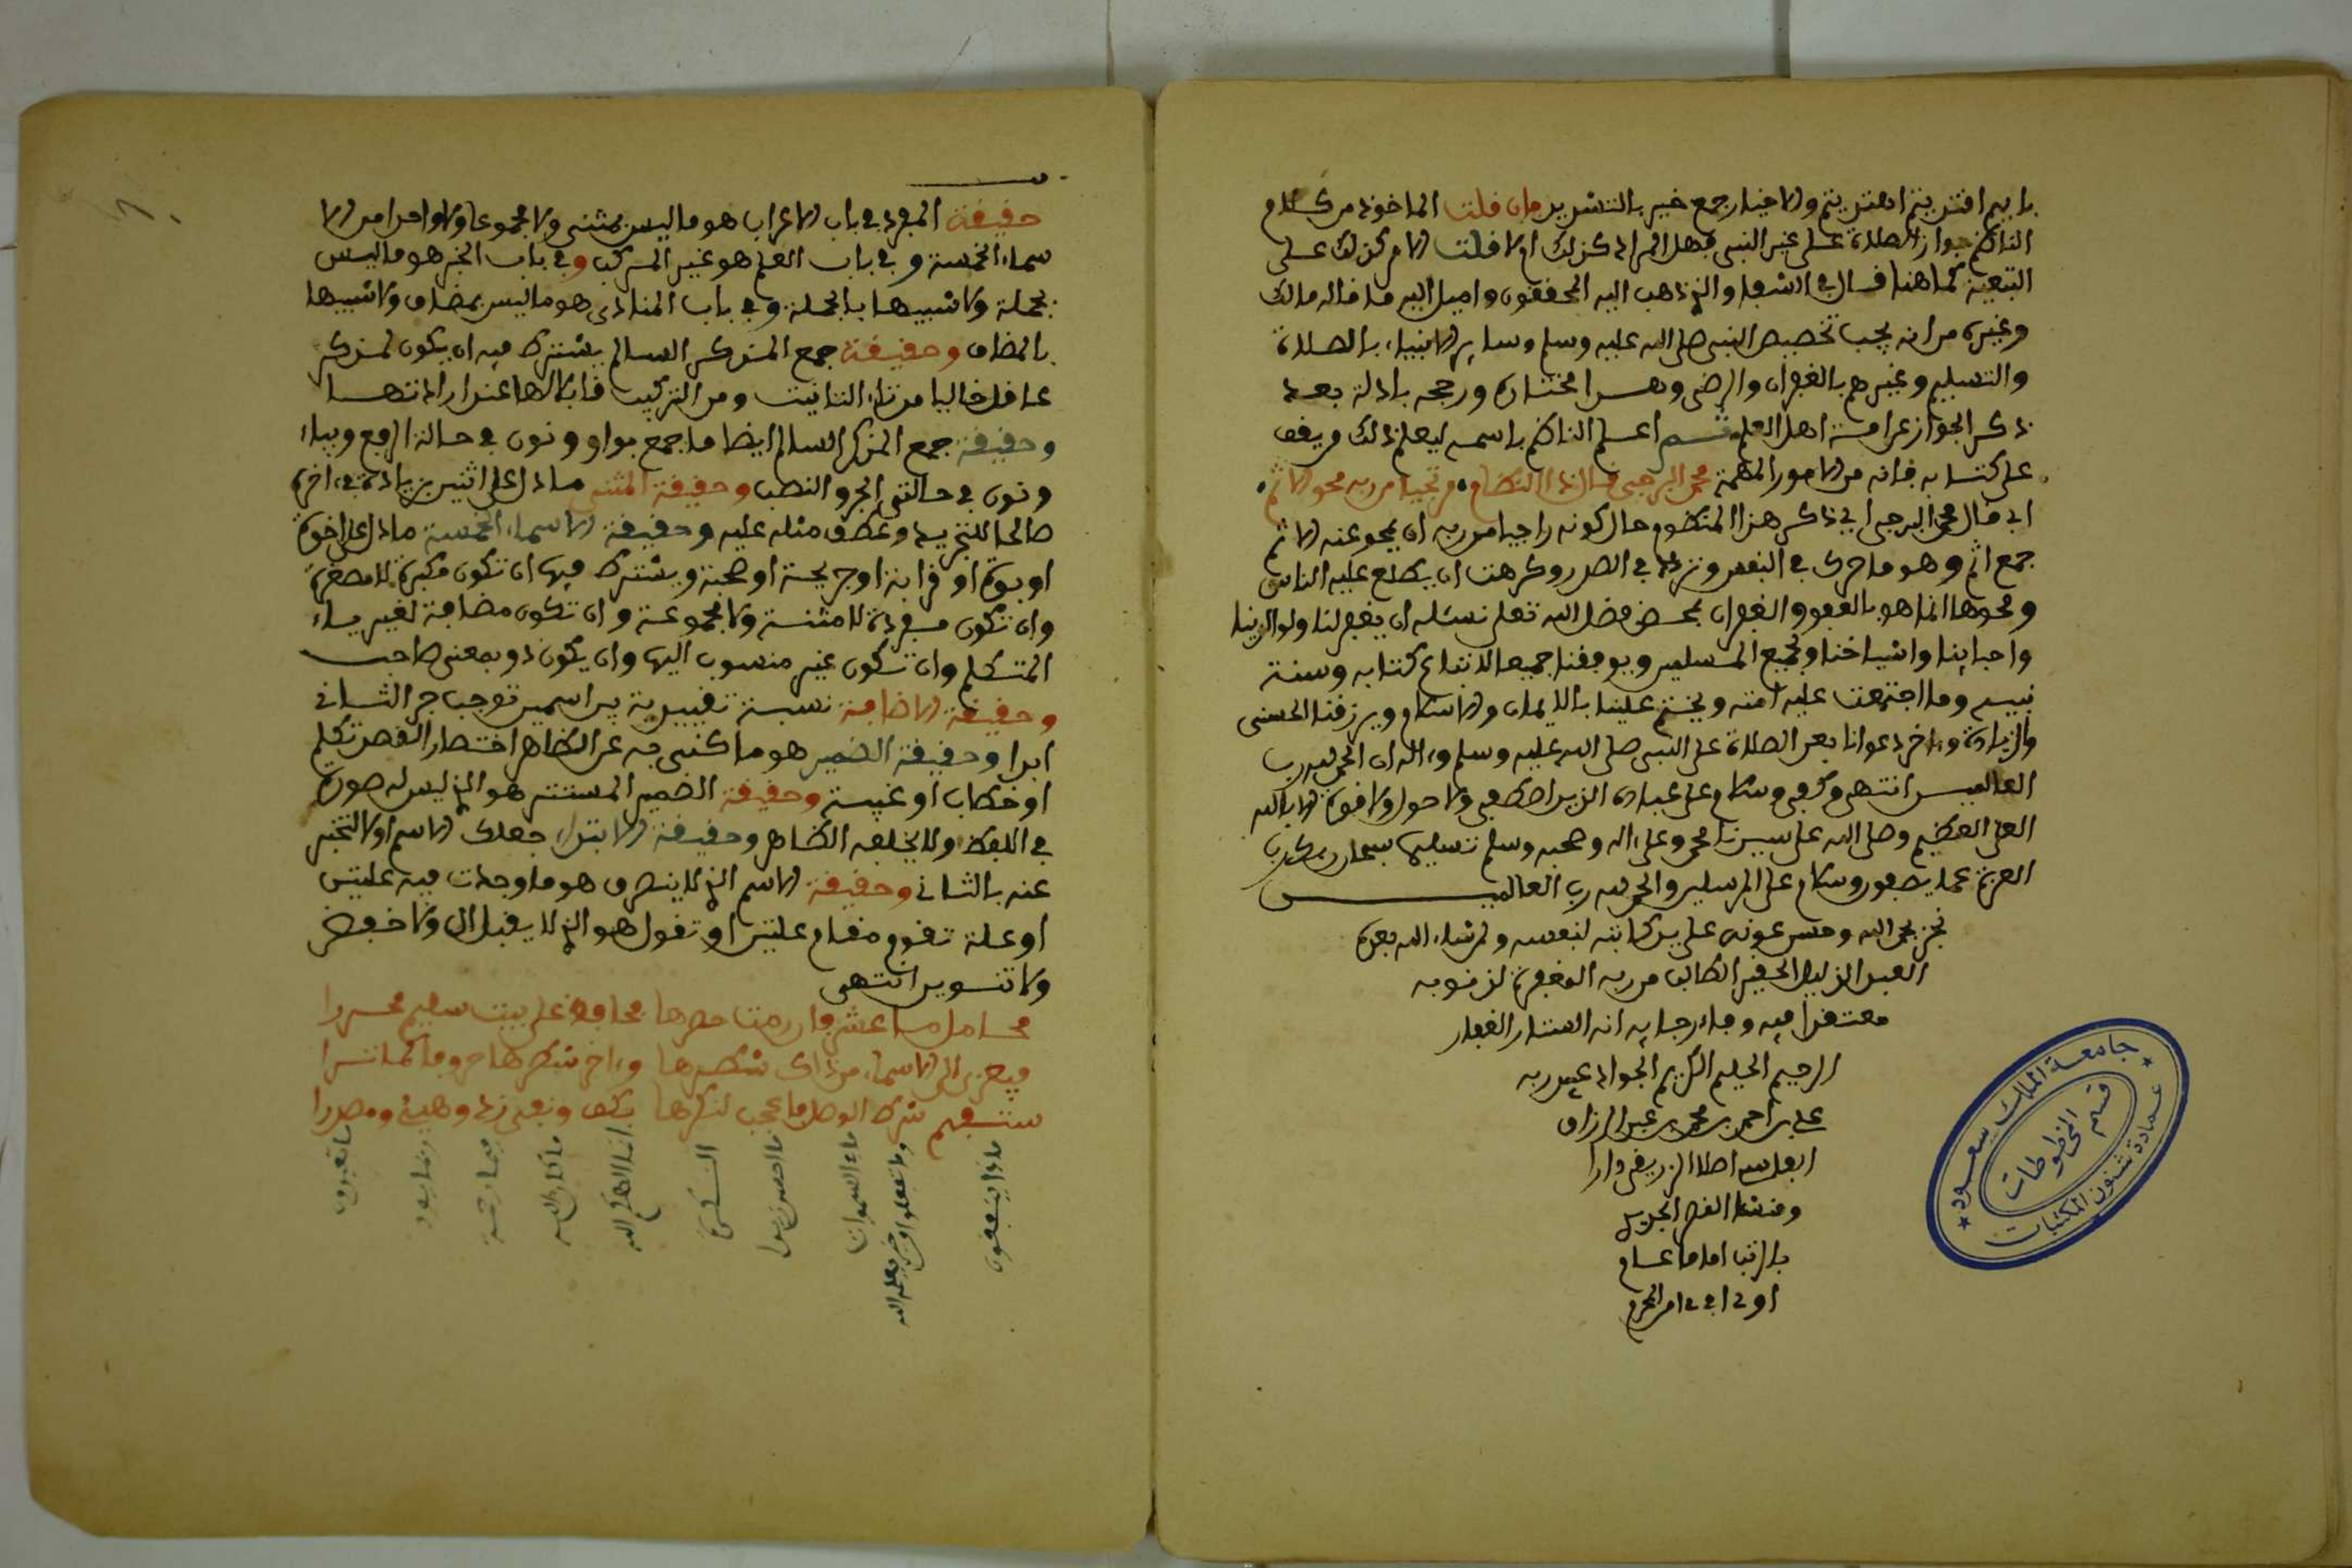 بايهم اقتديتم اهتديتم والاخيار جمع خير بالتشديد فان قلت الماخوذ من كلام
الناظم جواز الصلاة على غير النبي فهل المراد كذلك ام لا قلت الامر كذلك على
التبعية كما هنا قال في الشفا والذي ذهب اليه المحققون واميل اليه ما قاله مالك
وغيره من انه يجب تخصيص النبي صلى الله عليه وسلم وساير الانبياء بالصلاة
والتسليم وغيرهم بالغفران والرضى وهذا مختاره ورجحه بادلة بعد
ذكر الجواز عن امة اهل العلم ثم اعلم الناظم باسمه ليعلم ذلك من يقف
على كتابه فانه من الامور المهمة محمد البرجي قال ذا النظام مرتجيا من ربه محو الاثم
اي قال محمد البرجي اي ذكر هذا المنظوم حال كونه راجيا من ربه ان يمحو عنه الاثم
جمع اثم وهو ما حرك في النفس وتردد في الصدر وكرهت ان يطلع عليه الناس
ومحوها انما هو بالعفو والغفران بمحض فضل الله تعلى نسئله ان يغفر لنا ولوالدينا
واحبابنا واشياخنا ولجميع المسلمين ويوفقنا جميعا لاتباع كتابه وسنة
نبيه وما اجتمعت عليه امته ويختم علينا بالايمان والاسلام ويرزقنا الحسنى
والزيادة وءاخر دعوانا بعد الصلاة على النبي صلى الله عليه وسلم وءاله ان الحمد لله رب
العالمين انتهى وكفى وسلام على عباده الذين اصطفى ولا حول ولا قوة الا بالله
العلي العظيم وصلى الله على سيدنا محمد وعلى ءاله وصحبه وسلم تسليما سبحان ربك رب
العزة عما يصفون وسلام على المرسلين والحمد لله رب العالمين
نجز بحمد الله وحسن عونه على يد كاتبه لنفسه ولمن شاء الله بعده
العبد الذليل الحقير الطالب من ربه المغفرة لذنوبه
معتقدا فيه وجاء رجايه انه الستار الغفار
الرحيم الحليم الكريم الجواد عبيد ربه
علي بن احمد بن محمد بن عبد الرزاق
اصلا دارا
ومنشئا القصر الجديد
عام
جامعة الملك سعود
قسم المخطوطات
عمادة شئون المكتبات
حقيقة المفرد في باب الاعراب هو ما ليس بمثنى ولا مجموعا ولا واحدا من الا
سماء الخمسة وفي باب العلم هو غير المركب وفي باب الخبر هو ما ليس
بجملة ولا شبيها بالجملة وفي باب المنادى هو ما ليس بمضاف ولا شبيها
بالمضاف وحقيقة جمع المذكر السالم يشترط فيه ان يكون لمذكر
عاقل خاليا من تاء التانيث ومن التركيب قابلا لها عند ارادتها
وحقيقة جمع المذكر السالم ايضا ما جمع بواو ونون في حالة الرفع وبياء
ونون في حالتي الجر والنصب وحقيقة المثنى ما دل على اثنين بزيادة في ءاخره
صالحا للتجريد وعطف مثله عليه وحقيقة الاسماء الخمسة ما دل على اخوة
او بوة او قرابة او جريحة او صحبة ويشترط فيها ان تكون مكبرة لا مصغرة
وان تكون مفردة لا مثنية ولا مجموعة وان تكون مضافة لغير ياء
المتكلم وان تكون غير منسوب اليها وان يكون ذو بمعنى صاحب
وحقيقة الاضافة نسبة تقييدية بين اسمين توجب جر الثاني
ابدا وحقيقة الضمير هو ما كني به عن الظاهر اختصارا لقصد تكلم
او خطاب او غيبة وحقيقة الضمير المستتر هو الذي ليس له صورة
في اللفظ ولا يخلفه الظاهر وحقيقة الابتداء جعلك الاسم اولا لتخبر
عنه بالثاني وحقيقة الاسم الذي لا ينصرف هو ما وجدت فيه علتين
او علة تقوم مقام علتين او تقول هو الذي لا يقبل ال ولا خفض
ولا تنوين انتهى
محامل ما عشر فان رمت حصرها محافظ على بيت سليم محررا
شطرها وءاخر شطرها حروفا كما ترا
ستفهم شرط الوصل فاعجب لنكرها بكف ونفي زد وهيئ ومصدرا
ماذا ينفقون
وما تفعلوا من خير يعلمه الله
ما في السموات
فبما رحمة